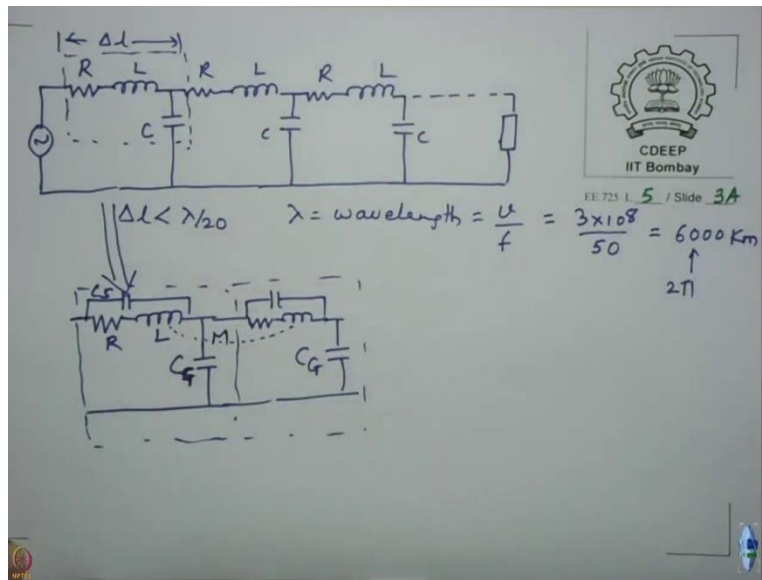 Δl
R L R L R L
C C C
CDEEP
IIT Bombay
EE 725 L 5 / Slide 3A
Δl < λ/20 λ = wavelength = v/f = 3×108/50 = 6000 Km
2π
Cs
R L M
CG CG
NPTEL